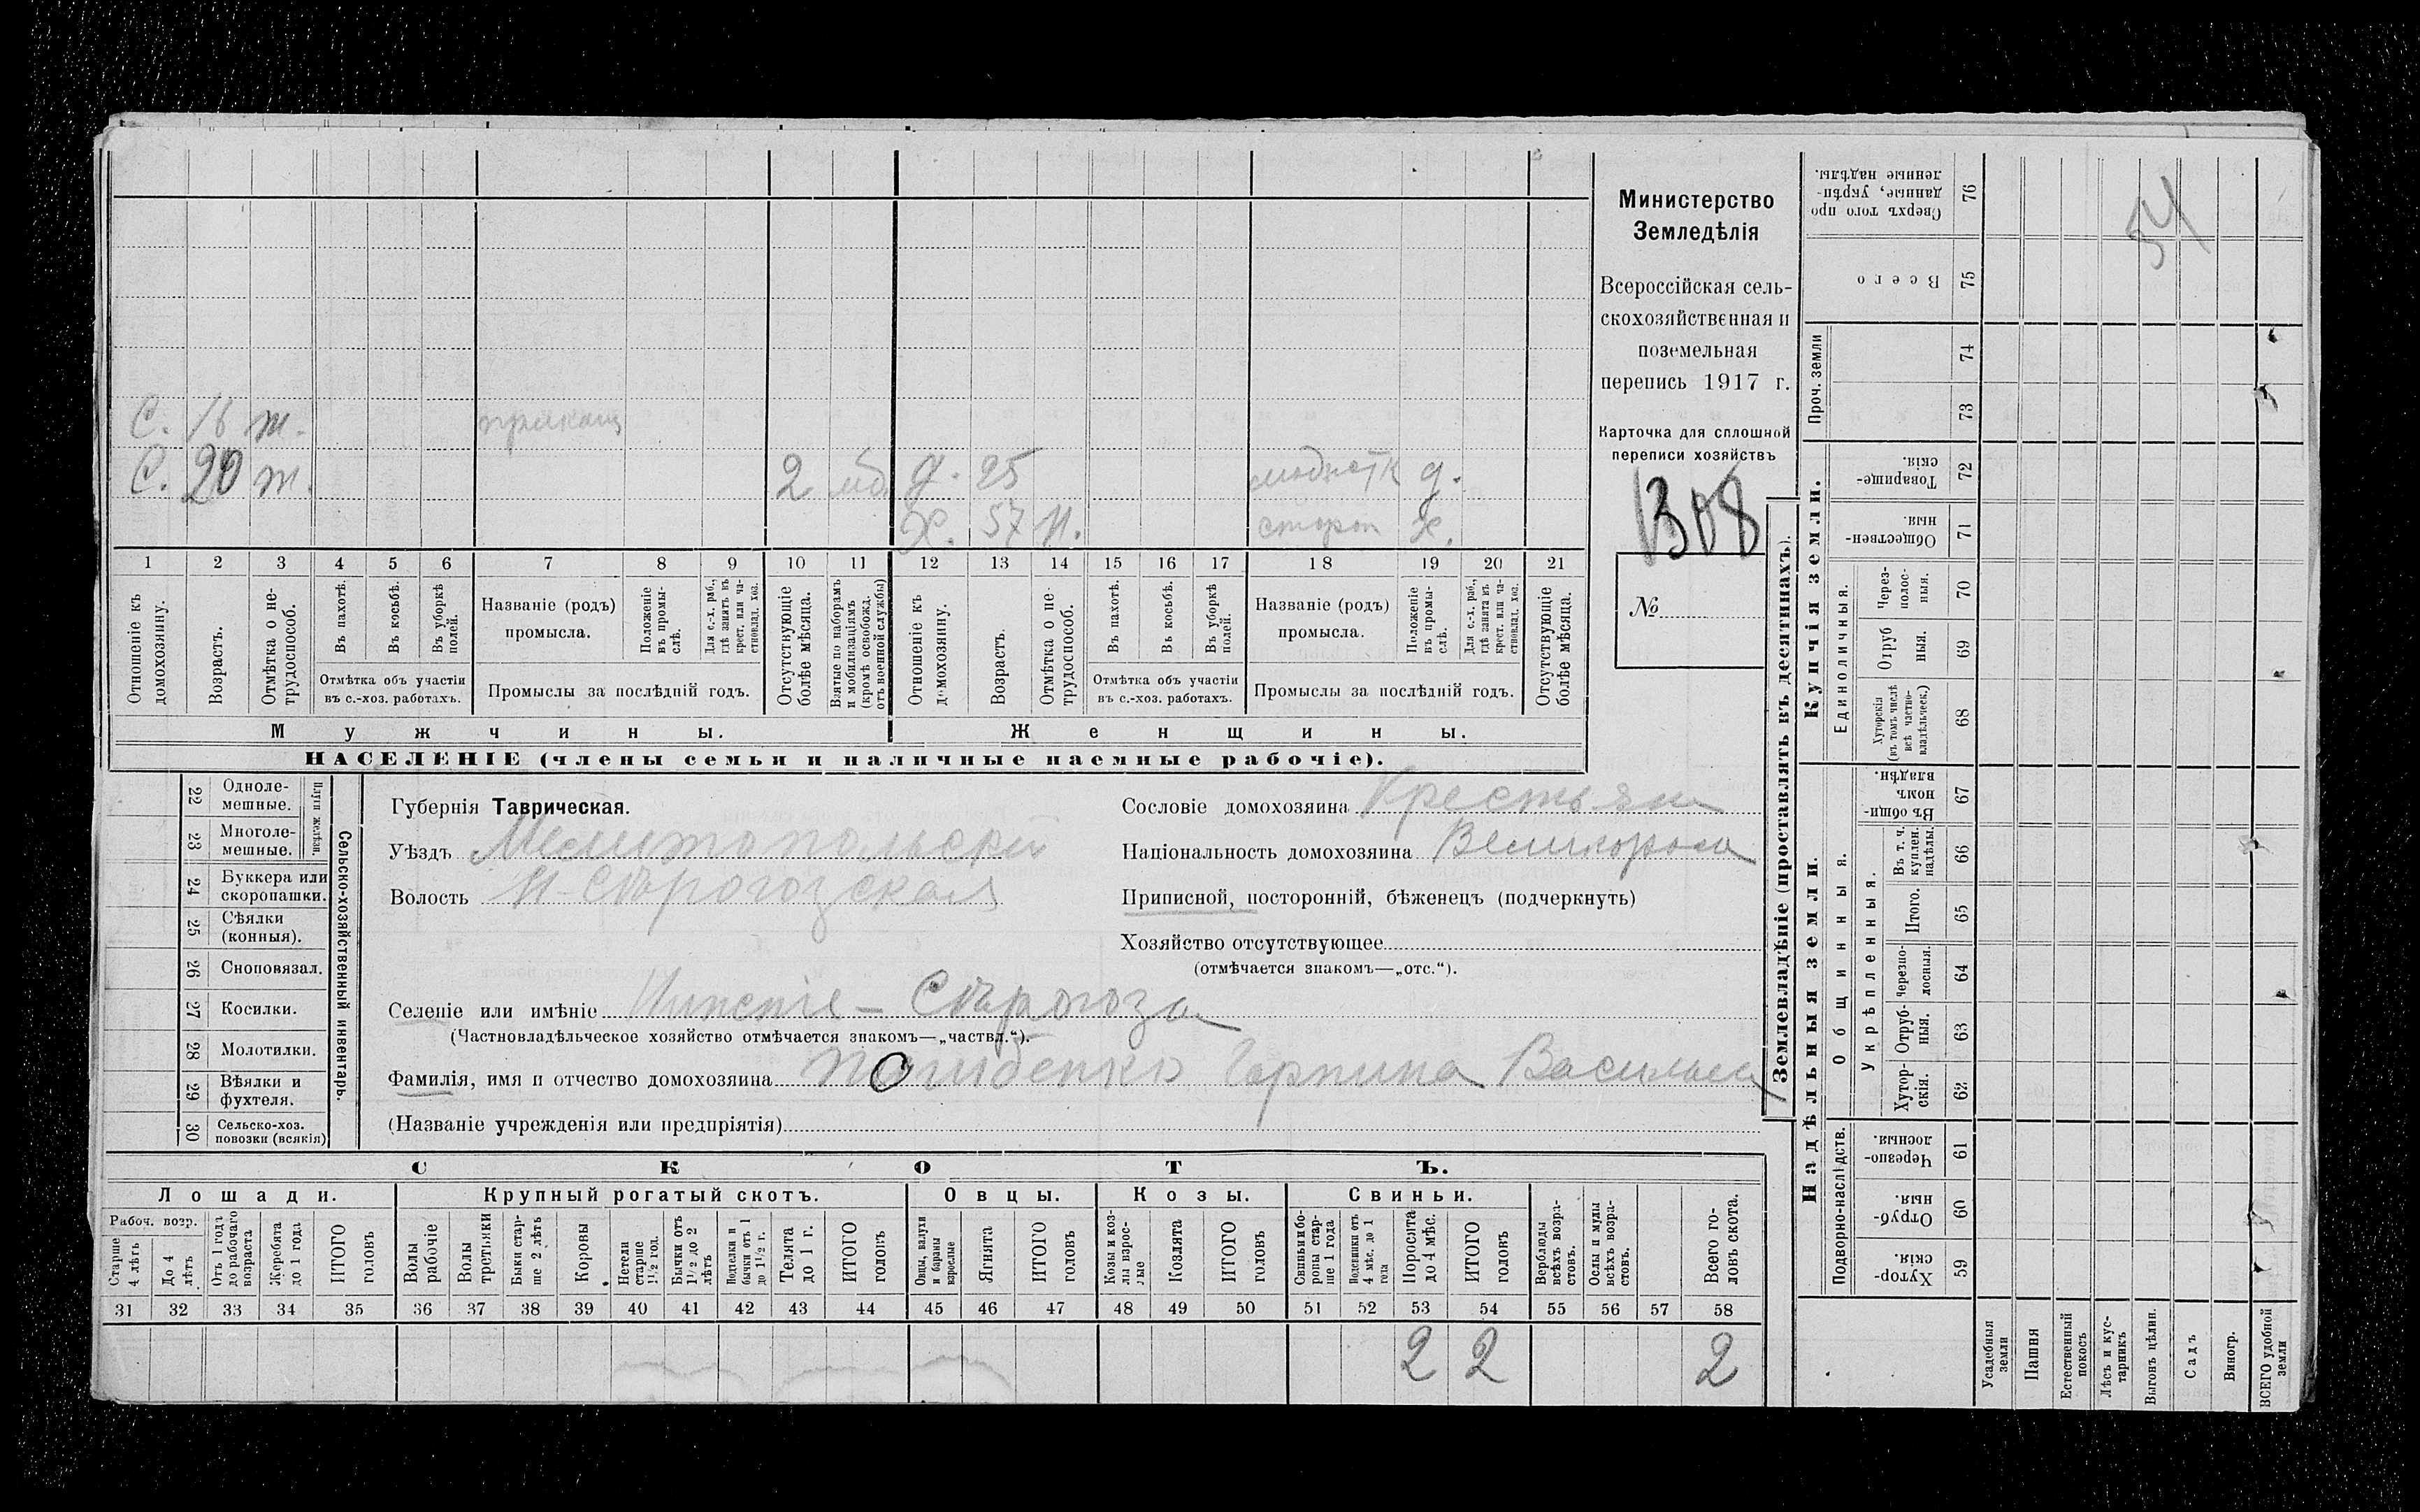 Министерство
Земледѣлія
Всероссійская сель-
скохозяйственная и
поземельная
перепись 1917 г.
Карточка для сплошной
переписи хозяйствъ
1308
№
С. 16 т. приказч
С. 20 т. 2 мб. д. 25 модистк д.
Х. 57 п. х.
1 2 3 4 5 6 7 8 9 10 11 12 13 14 15 16 17 18 19 20 21
Отношеніе къ домохозяину.
Возрастъ.
Отмѣтка о не-трудоспособ.
Въ пахотѣ.
Въ косьбѣ.
Въ уборкѣ полей.
Отмѣтка объ участіи
въ с.-хоз. работахъ.
Названіе (родъ)
промысла.
Положеніе въ промы-слѣ.
Для с.-х. раб., гдѣ занятъ въ крест. или ча-стновлад. хоз.
Промыслы за послѣдній годъ.
Отсутствующіе болѣе мѣсяца.
Взятые по наборамъ и мобилизаціямъ (кромѣ освобожд. отъ военной службы)
Отношеніе къ домохозяину.
Возрастъ.
Отмѣтка о не-трудоспособ.
Въ пахотѣ.
Въ косьбѣ.
Въ уборкѣ полей.
Отмѣтка объ участіи
въ с.-хоз. работахъ.
Названіе (родъ)
промысла.
Положеніе въ промы-слѣ.
Для с.-х. раб., гдѣ занята въ крест. или ча-стновлад. хоз.
Промыслы за послѣдній годъ.
Отсутствующіе болѣе мѣсяца.
Мужчины. Женщины.
НАСЕЛЕНІЕ (члены семьи и наличные наемные рабочіе).
22 Одноле-мешные.
23 Многоле-мешные.
Плуги желѣзн.
24 Буккера или скоропашки.
25 Сѣялки (конныя).
26 Сноповязал.
27 Косилки.
28 Молотилки.
29 Вѣялки и фухтеля.
30 Сельско-хоз. повозки (всякія)
Сельско-хозяйственный инвентарь.
Губернія Таврическая.
Уѣздъ Мелитопольскій
Волость Н-Сѣрогозская
Селеніе или имѣніе Нижніе-Сѣрогоза
(Частновладѣльческое хозяйство отмѣчается знакомъ—„частвл.“).
Фамилія, имя и отчество домохозяина Горпина Васильев
(Названіе учрежденія или предпріятія)
Сословіе домохозяина Крестьян
Національность домохозяина Великоросс
Приписной, посторонній, бѣженецъ (подчеркнуть)
Хозяйство отсутствующее
(отмѣчается знакомъ—„отс.“).
СКОТЪ.
Лошади. Крупный рогатый скотъ. Овцы. Козы. Свиньи.
Рабоч. возр.
Старше 4 лѣтъ
До 4 лѣтъ
Отъ 1 года до рабочаго возраста
Жеребята до 1 года
ИТОГО головъ
Волы рабочіе
Волы третьяки
Быки стар-ше 2 лѣтъ
Коровы
Нетели старше 1½ год.
Бычки отъ 1½ до 2 лѣтъ
Подтелки и бычки отъ 1 до 1½ г.
Телята до 1 г.
ИТОГО головъ
Овцы, валухи и бараны взрослые
Ягнята
ИТОГО головъ
Козы и коз-лы взрос-лые
Козлята
ИТОГО головъ
Свиньи и бо-ровы стар-ше 1 года
Подсвинки отъ 4 мѣс. до 1 года
Поросята до 4 мѣс.
ИТОГО головъ
Верблюды всѣхъ возра-стовъ.
Ослы и мулы всѣхъ возра-стовъ.
Всего го-ловъ скота.
31 32 33 34 35 36 37 38 39 40 41 42 43 44 45 46 47 48 49 50 51 52 53 54 55 56 57 58
2 2 2
Землевладѣніе (проставлять въ десятинахъ).
Надѣльныя земли. Купчія земли. Проч. земли
Подворно-наслѣдств.
Общинныя.
Укрѣпленныя.
Единоличныя.
59 Хутор-скія.
60 Отруб-ныя.
61 Черезпо-лосныя.
62 Хутор-скія.
63 Отруб-ныя.
64 Черезпо-лосныя.
65 Итого.
66 Въ т. ч. куплен. надѣлы.
67 Въ общи-номъ владѣн.
68 Хуторскія (въ томъ числѣ всѣ частно-владѣльческ.)
69 Отруб ныя.
70 Через-полос-ныя.
71 Обществен-ныя
72 Товарище-скія.
73
74
75 Всего
76 Сверхъ того про данные, укрѣп-ленные надѣлы.
54
Усадебныя земли
Пашня
Естественный покосъ
Лѣсъ и кус-тарникъ
Выгонъ цѣлин.
Садъ
Виногр.
ВСЕГО удобной земли